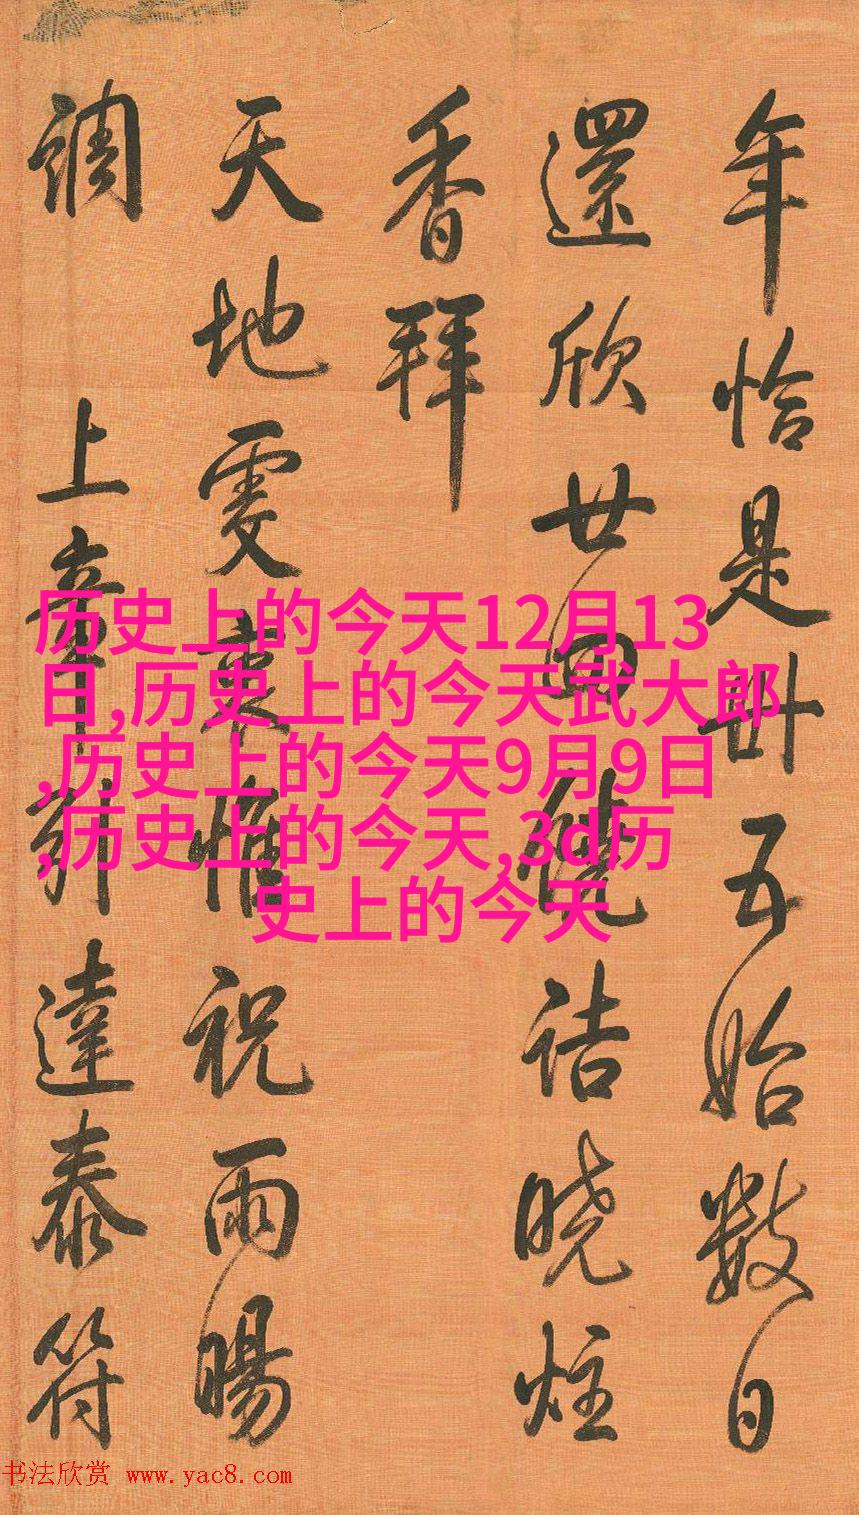 年恰是卅五始數日
還欣廿饒詰曉炷
香拜
天地虔衷惟祝雨暘
調 上章達泰符
历史上的今天12月13
日,历史上的今天武大郎
,历史上的今天9月9日
,历史上的今天,3d历
史上的今天
书法欣赏 www.yac8.com